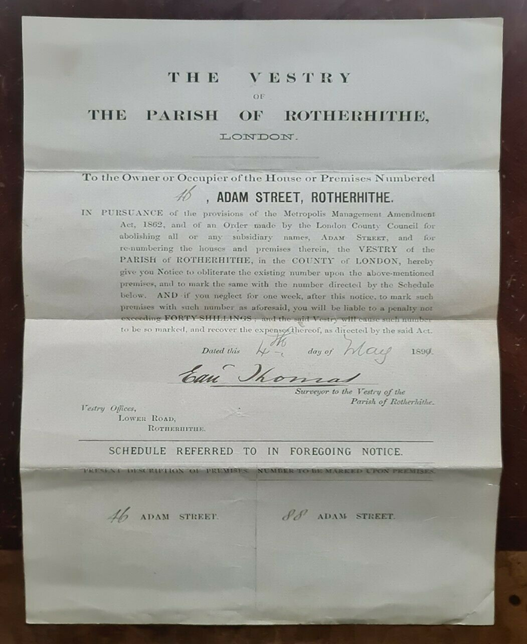 THE VESTRY
OF
THE PARISH OF ROTHERHITHE,
LONDON.
To the Owner or Occupier of the House or Premises Numbered
46, ADAM STREET, ROTHERHITHE.
IN PURSUANCE of the provisions of the Metropolis Management Amendment
Act, 1862, and of an Order made by the London County Council for
abolishing all or any subsidiary names, ADAM STREET, and for
re-numbering the houses and premises therein, the VESTRY of the
PARISH of ROTHERHITHE, in the COUNTY of LONDON, hereby
give you Notice to obliterate the existing number upon the above-mentioned
premises, and to mark the same with the number directed by the Schedule
below. AND if you neglect for one week, after this notice, to mark such
premises with such number as aforesaid, you will be liable to a penalty not
exceeding FORTY SHILLINGS and the said Vestry will cause such number
to be so marked, and recover the expenses thereof, as directed by the said Act.
Dated this 4th day of May
Thomas
Surveyor to the Vestry of the
Parish of Rotherhithe.
Vestry Offices,
LOWER ROAD,
ROTHERHITHE.
SCHEDULE REFERRED TO IN FOREGOING NOTICE.
PRESENT DESCRIPTION OF PREMISES. NUMBER TO BE MARKED UPON PREMISES.
46 ADAM STREET. 88 ADAM STREET.